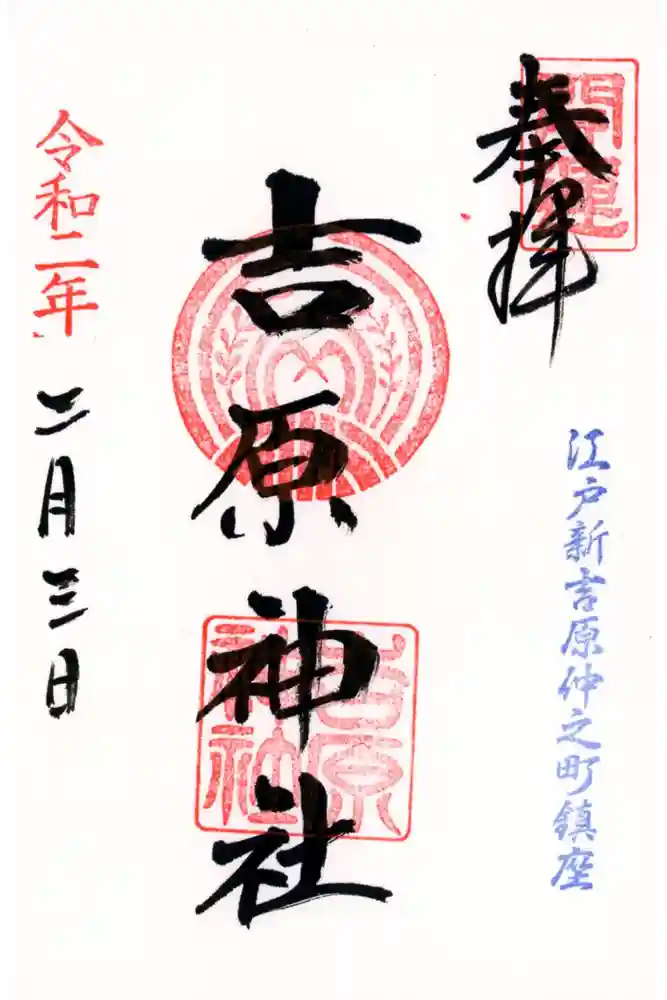 奉拝
開運
江戸新吉原仲之町鎮座
吉原神社
吉原神社
令和二年
二月三日